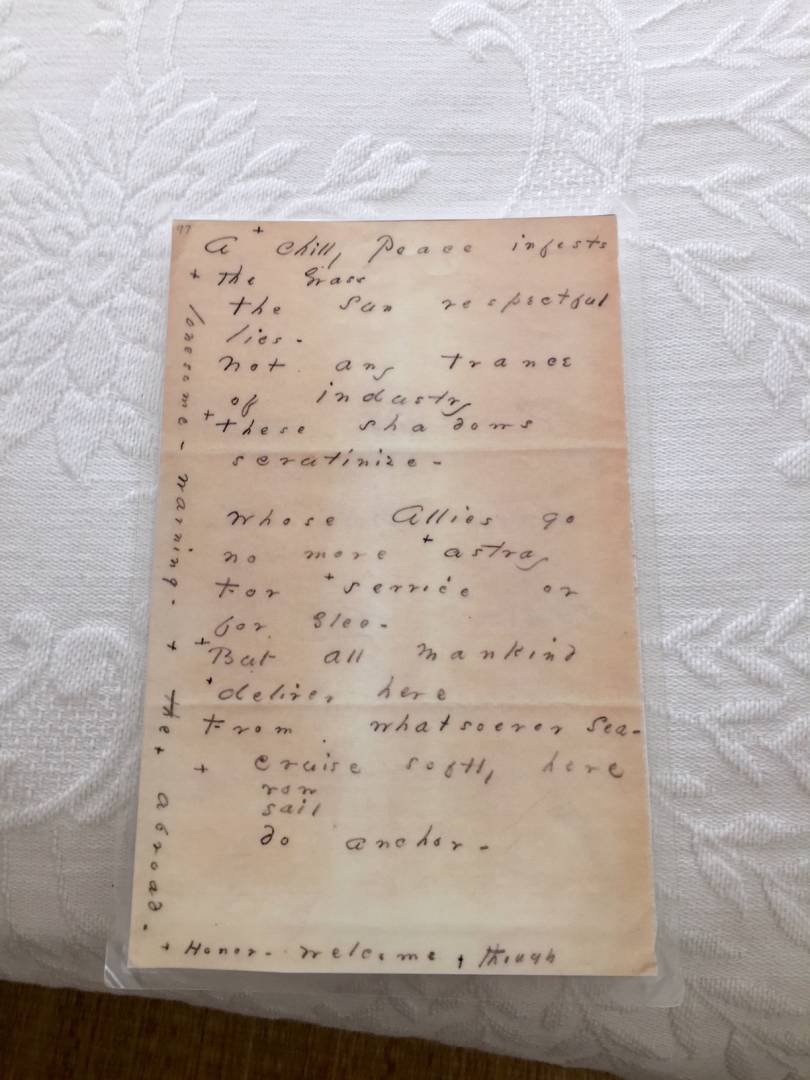 77
A + chill, Peace infests
+ the Grass
the Sun respectful
lies -
Not any trance
of industry
+ these shadows
scrutinize -
Whose Allies go
no more + astray
For + service or
for Glee -
+ But all mankind
+ deliver here
From whatsoever Sea -
+ cruise softly here
row
sail
do anchor -
+ Honor - welcome + though
+ lonesome - warning - + the + abroad -